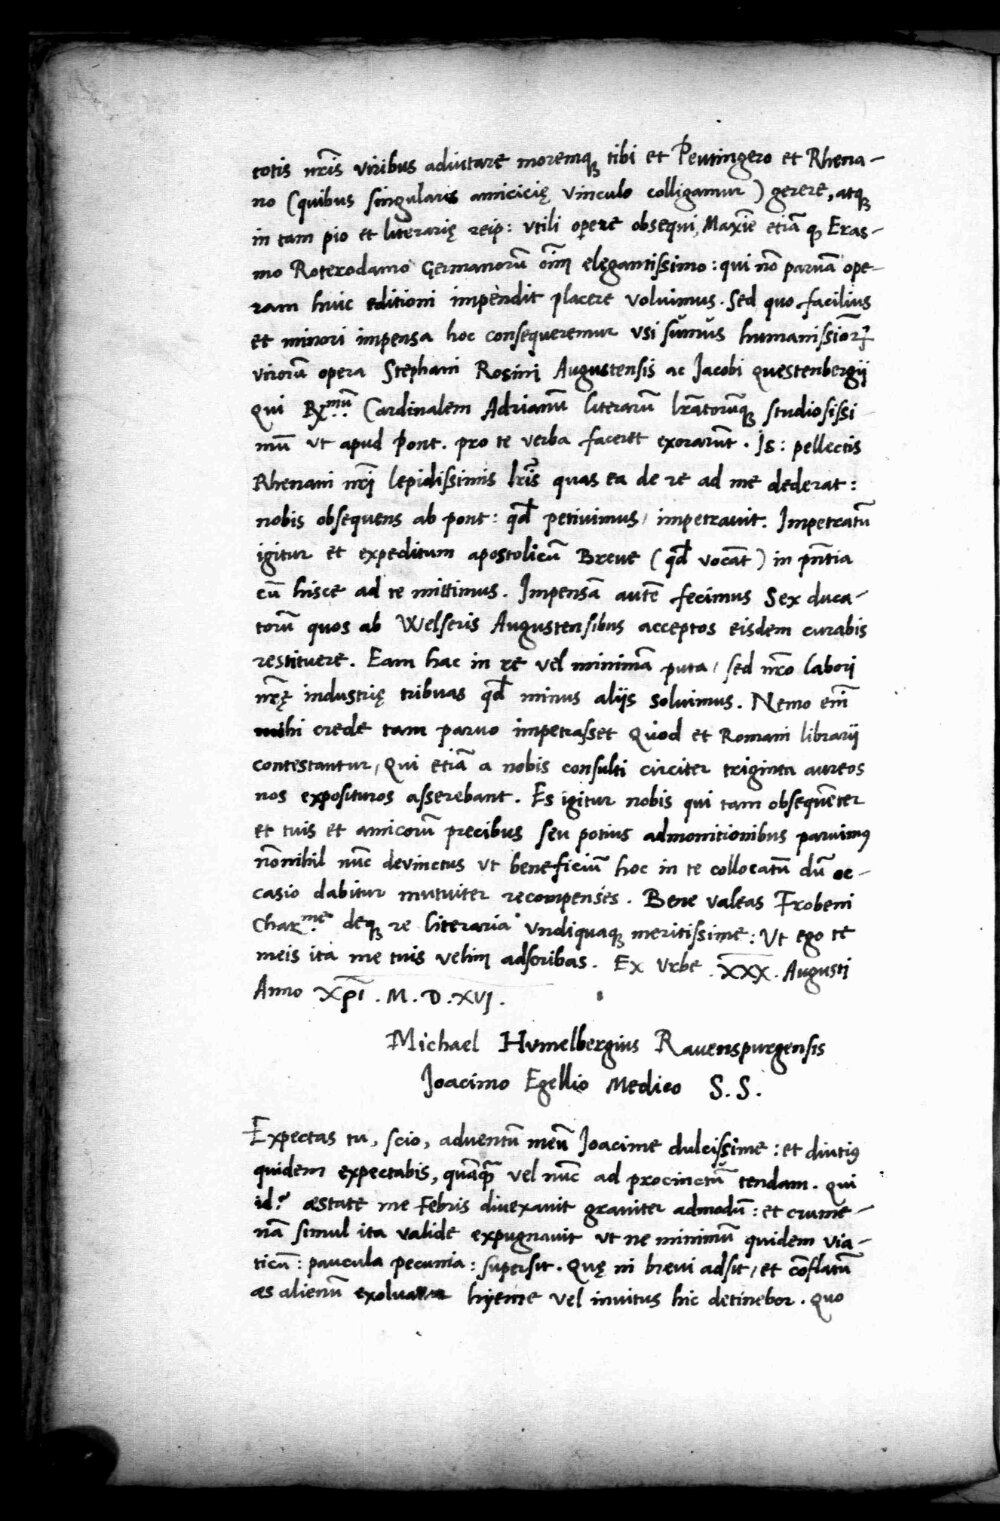 totis nr̃is viribus adiutare moremqꝫ tibi et Peutingero et Rhena-
no (quibus singularis amicicię vinculo colligamur) gerere, atqꝫ
in tam pio et literarię reip: vtili opere obsequi, Maxĩe etiã q̃ Eras-
mo Roterodamo Germanorũ oĩm elegantissimo: qui nõ paruã ope-
ram huic editioni impendit placere voluimus. Sed quo facilius
et minori impensa hoc consequeremur vsi sumus humanissiorꝝ
virorũ opera Stephani Rosini Augustensis ac Jacobi Questenbergij
qui R.mũ Cardinalem Adrianũ literarũ lr̃atorũqꝫ studiosissi-
mũ vt apud Pont. pro te verba faceret exorarũt. Is: pellectis
Rhenani nr̃i lepidissimis lr̃is quas ea de re ad me dederat:
nobis obsequens ab pont: qd̃ petiuimus, impetrauit. Impetratũ
igitur et expeditum apostolicũ Breue (qd̃ vocãt) in pñtia
cũ hisce ad te mittimus. Impensã autẽ fecimus Sex duca-
torũ quos ab Welseris Augustensibus acceptos eisdem curabis
restituere. Eam hac in re vel minimã puta, sed nr̃o labori
nr̃ę industrię tribuas qd̃ minus alijs soluimus. Nemo eñi
mihi crede tam paruo impetrasset Quod et Romani librarij
contestantur, qui etiã a nobis consulti circiter triginta aureos
nos exposituros asserebant. Es igitur nobis qui tam obsequẽter
et tuis et amicorũ precibus seu potius admonitionibus paruimus
nõnihil nũc deuinctus vt beneficiũ hoc in te collocatũ dũ oc-
casio dabitur mutuiter recompenses. Bene valeas Frobeni
Char.me deqꝫ re literaria vndiquaqꝫ meritissime: Vt ego te
meis ita me tuis velim adscribas. Ex Vrbe. XXX. Augusti
Anno Xp̃i. M. D. XVI.
Michael Hvmelbergius Rauenspurgensis
Joacimo Egellio Medico S. S.
Expectas tu, scio, aduentũ meũ Joacime dulcissime: et diutius
quidem expectabis, quãq̃ vel nũc ad procinctũ tendam. Qui
id? æstate me Febris diuexauit grauiter admodũ: et crume-
nã simul ita valide expugnauit vt ne minimũ quidem via-
ticũ: paucula pecunia: supersit. Quę ni breui adsit, et cõflatũ
æs alienũ hyeme vel inuitus hic detinebor. Quo